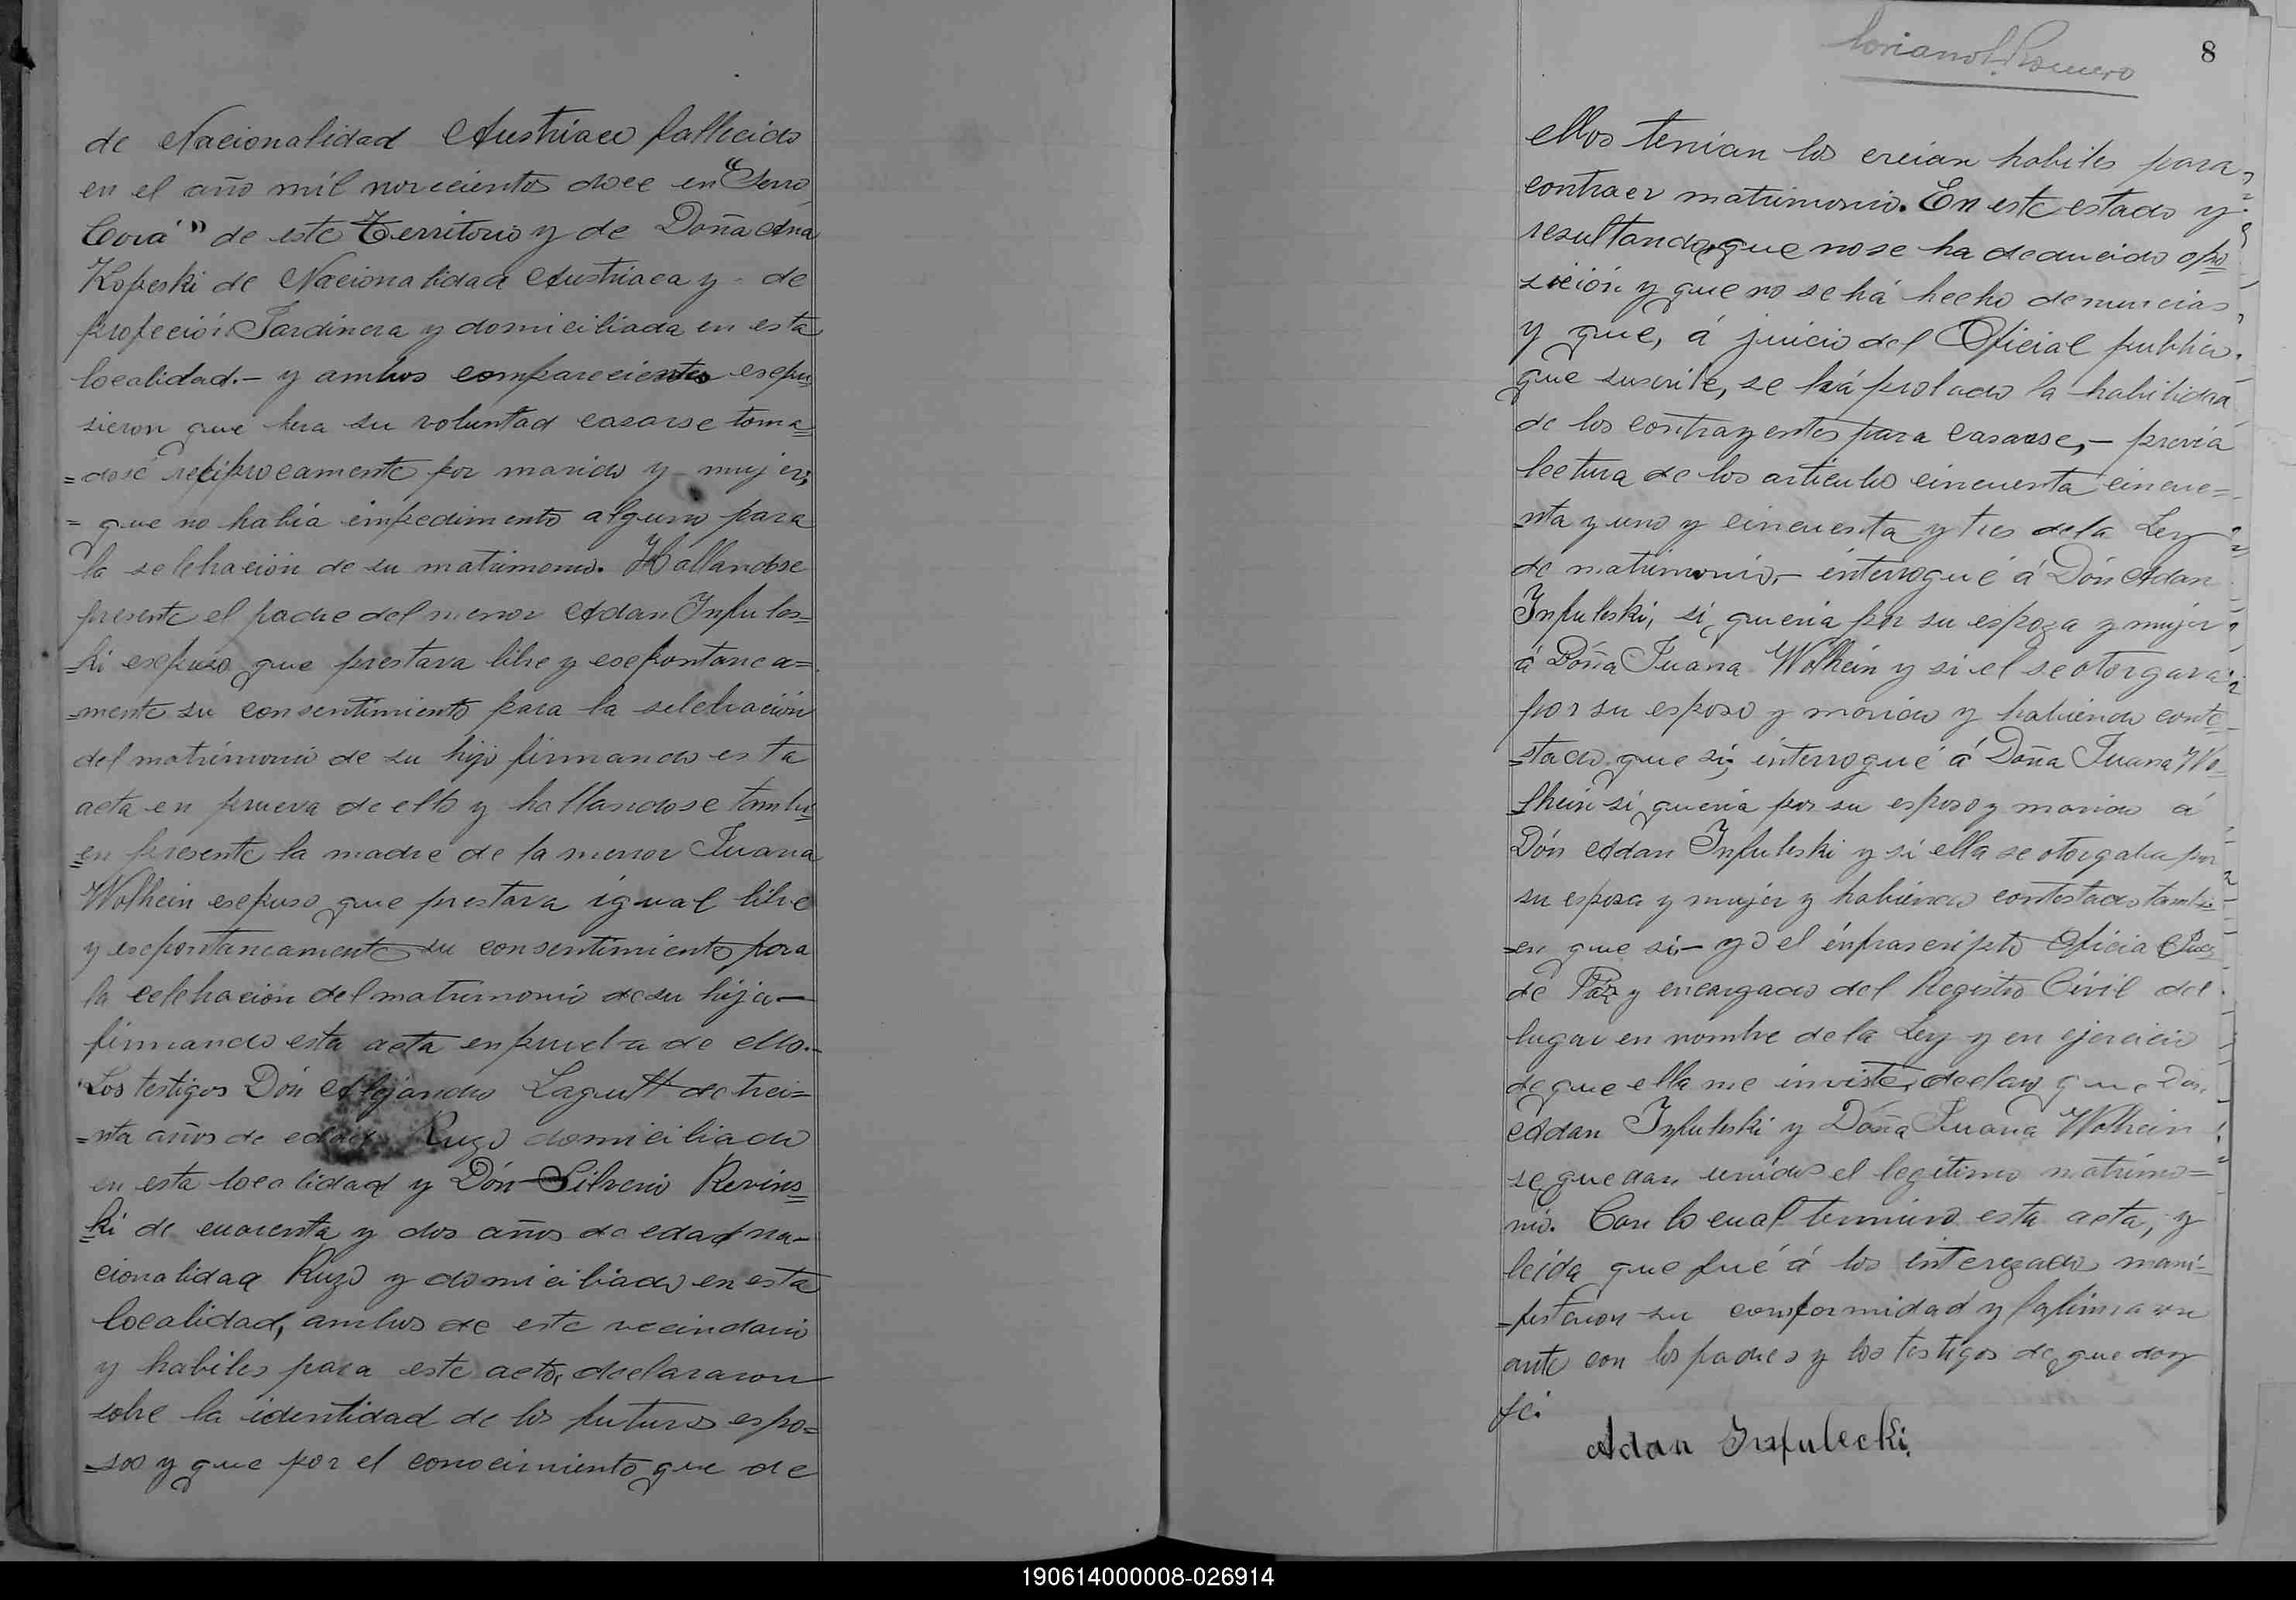 de Nacionalidad Austriaco fallecido
en el año mil novecientos doce en "Serro
Corá" de este Territorio y de Doña Ana
Kopeski de Nacionalidad Austriaca y de
profeción Jardinera y domiciliada en esta
localidad.- y ambos comparecientes esepu=
sieron que hera su voluntad casarse toma=
=dose reciprocamente por marido y mujer;
= que no había impedimento alguno para
la selebración de su matrimonio. Hallandose
presente el padre del menor Adan Infules=
=ki esepuso que prestava libre y esepontanea=
=mente su consentimiento para la selebración
del matrimonio de su hijo firmando esta
acta en prueva de ello y hallandose tambi=
=en presente la madre de la menor Juana
Wolhein esepuso que prestava igual libre
y esepontaneamente su consentimiento para
la celebración del matrimonio de su hija-
firmando esta acta en prueba de ello.-
Los testigos Dón Alejandro Lagutt de trei=
=nta años de edad Ruzo domiciliado
en esta localidad y Dón Silverio Revins=
=ki de cuarenta y dos años de edad na-
cionalidad Ruzo y domiciliado en esta
localidad, ambos de este vecindario
y habiles para este acto, declararon
sobre la identidad de los futuros espo=
=sos y que por el conocimiento que de
Romero
8
ellos tenian los creian habiles para
contraer matrimonio. En este estado y
resultando que no se ha deducido opo=
sición y que no se há hecho denuncias
y que, á juicio del Oficial publico
que suscribe, se há probado la habilidad
de los contrayentes para casarse,- previa
lectura de los articulos cincuenta cincue=
=nta y uno y cincuenta y tres de la Ley
de matrimonio,- interrogué á Dón Adan
Infuleski, si queria por su espoza y mujer
á Doña Juana Wolhein y si el se otorgava
por su esposo y marido y habiendo conte=
=stado que si; interrogué á Doña Juana Wo=
lhein si queria por su esposo y marido á
Dón Adan Infuleski y si ella se otorgaba por
su esposa y mujer y habiendo contestado tambi=
=en que si- yo el infrascripto Oficial Juez
de Paz y encargado del Registro Civil del
lugar en nombre de la Ley y en ejercicio
de que ella me inviste, declaro que Dón
Adan Infuleski y Doña Juana Wolhein
se quedan unidos el legítimo matrimo=
nio. Con lo cual termino esta acta, y
leída que fué á los interezados mani=
=festaron su conformidad y la firmaron
ante con los padres y los testigos de que doy
fé.
Adan Infulecki
190614000008-026914